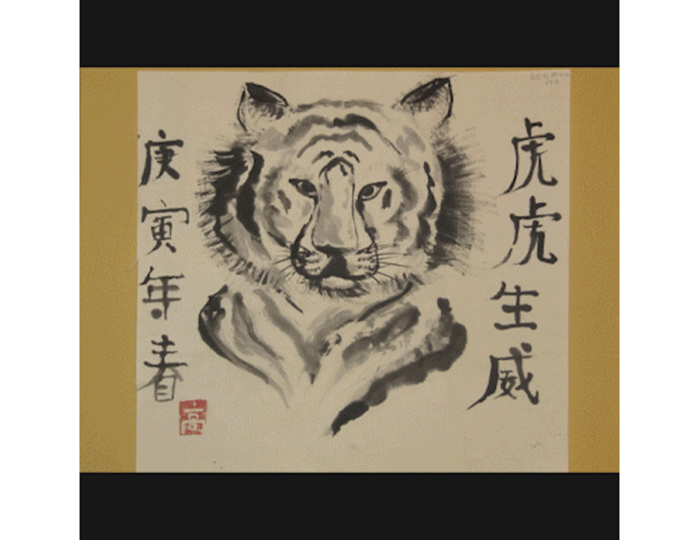 虎虎生威
庚寅年春
高